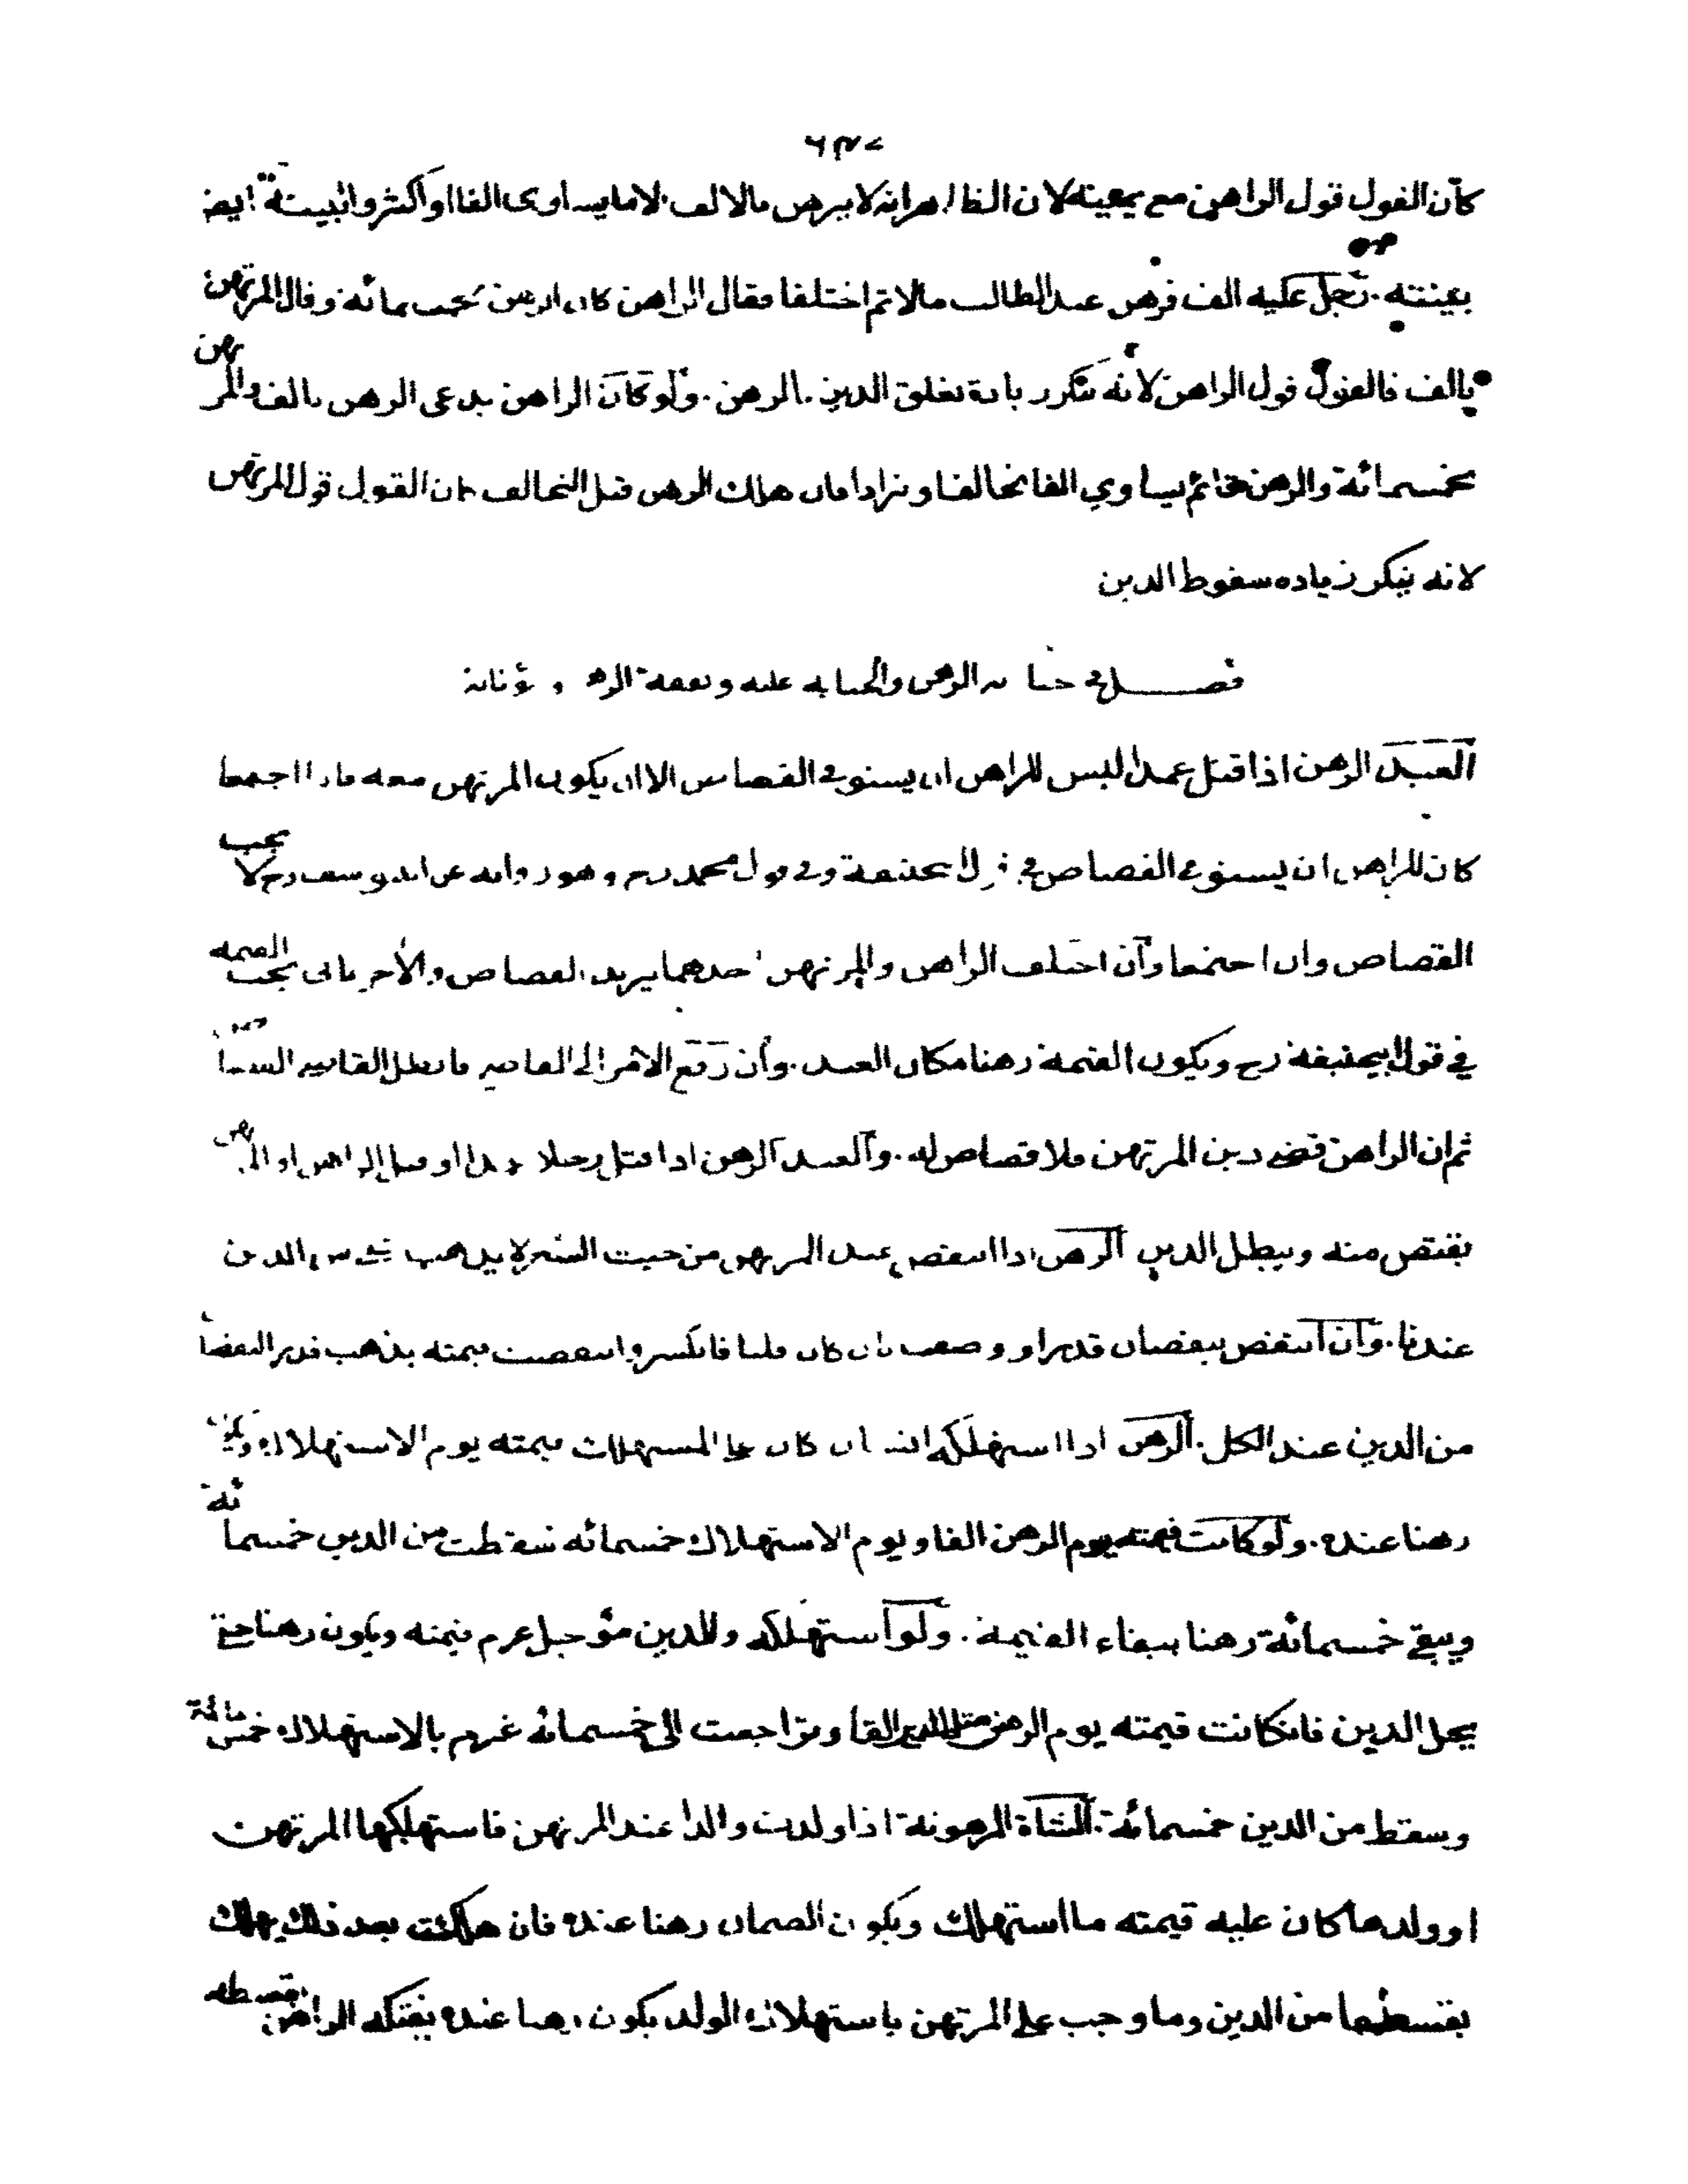 كان القول قول الراهن مع يمينه لان الظاهر انه لا يرهن بالالف الا ما يساوى الفا او اكثر والبينة ايضا
بينته. رجل عليه الف فرهن عند الطالب مالا ثم اختلفا فقال الراهن كان الرهن بخمسمائة وقال المرتهن
بالف فالقول قول الراهن لانه ينكر زيادة تعلق الدين بالرهن. ولو كان الراهن يدعى الرهن بالف والمرتهن
بخمسمائة والرهن قائم يساوي الفا تحالفا وترادا فان هلك الرهن قبل التحالف كان القول قول المرتهن
لانه ينكر زياده سقوط الدين
فصل في جناية الرهن والجناية عليه ونفقة الرهن و مؤناته
العبد الرهن اذا قتل عمدا ليس للراهن ان يستوفي القصاص الا ان يكون المرتهن معه فاذا اجتمعا
كان للراهن ان يستوفي القصاص في قول ابي حنيفة وفي قول محمد رح وهو رواية عن ابي يوسف رح لا يجب
القصاص وان اجتمعا وان اختلف الراهن والمرتهن احدهما يريد القصاص والاخر يابى تجب القيمه
في قول ابيحنيفة رح ويكون القيمة رهنا مكان العبد. وان رفع الامر الى القاضي فابطل القاضي القصاص
ثم ان الراهن قضى دين المرتهن فلا قصاص له. والعبد الرهن اذا قتل رجلا عمدا او قتل الراهن او المرتهن
يقتص منه ويبطل الدين الرهن اذا انتقص عند المرتهن من حيث السعر لا يذهب شئ من الدين
عندنا. وان انتقص بنقصان قدر او وصف بان كان قلبا فانكسر وانتقصت قيمته يذهب قدر النقصان
من الدين عند الكل. الرهن اذا استهلكه انسان كان على المستهلك قيمته يوم الاستهلاك ويكون
رهنا عنده. ولو كانت قيمته يوم الرهن الفا ويوم الاستهلاك خمسمائه سقطت من الدين خمسمائه
ويبقى خمسمائة رهنا ببقاء القيمة. ولو استهلكه والدين مؤجل غرم قيمته ويكون رهنا حتى
يحل الدين فان كانت قيمته يوم الرهن مثل الدين الفا وتراجعت الى خمسمائه غرم بالاستهلاك خمسمائة
وسقط من الدين خمسمائة. الشاة المرهونة اذا ولدت ولدا عند المرتهن فاستهلكها المرتهن
او ولدها كان عليه قيمته ما استهلك ويكون الضمان رهنا عنده فان هلكت بعد ذلك يهلك
بقسطها من الدين وما وجب على المرتهن باستهلاك الولد يكون رهنا عنده يفتكه الراهن بقسطه